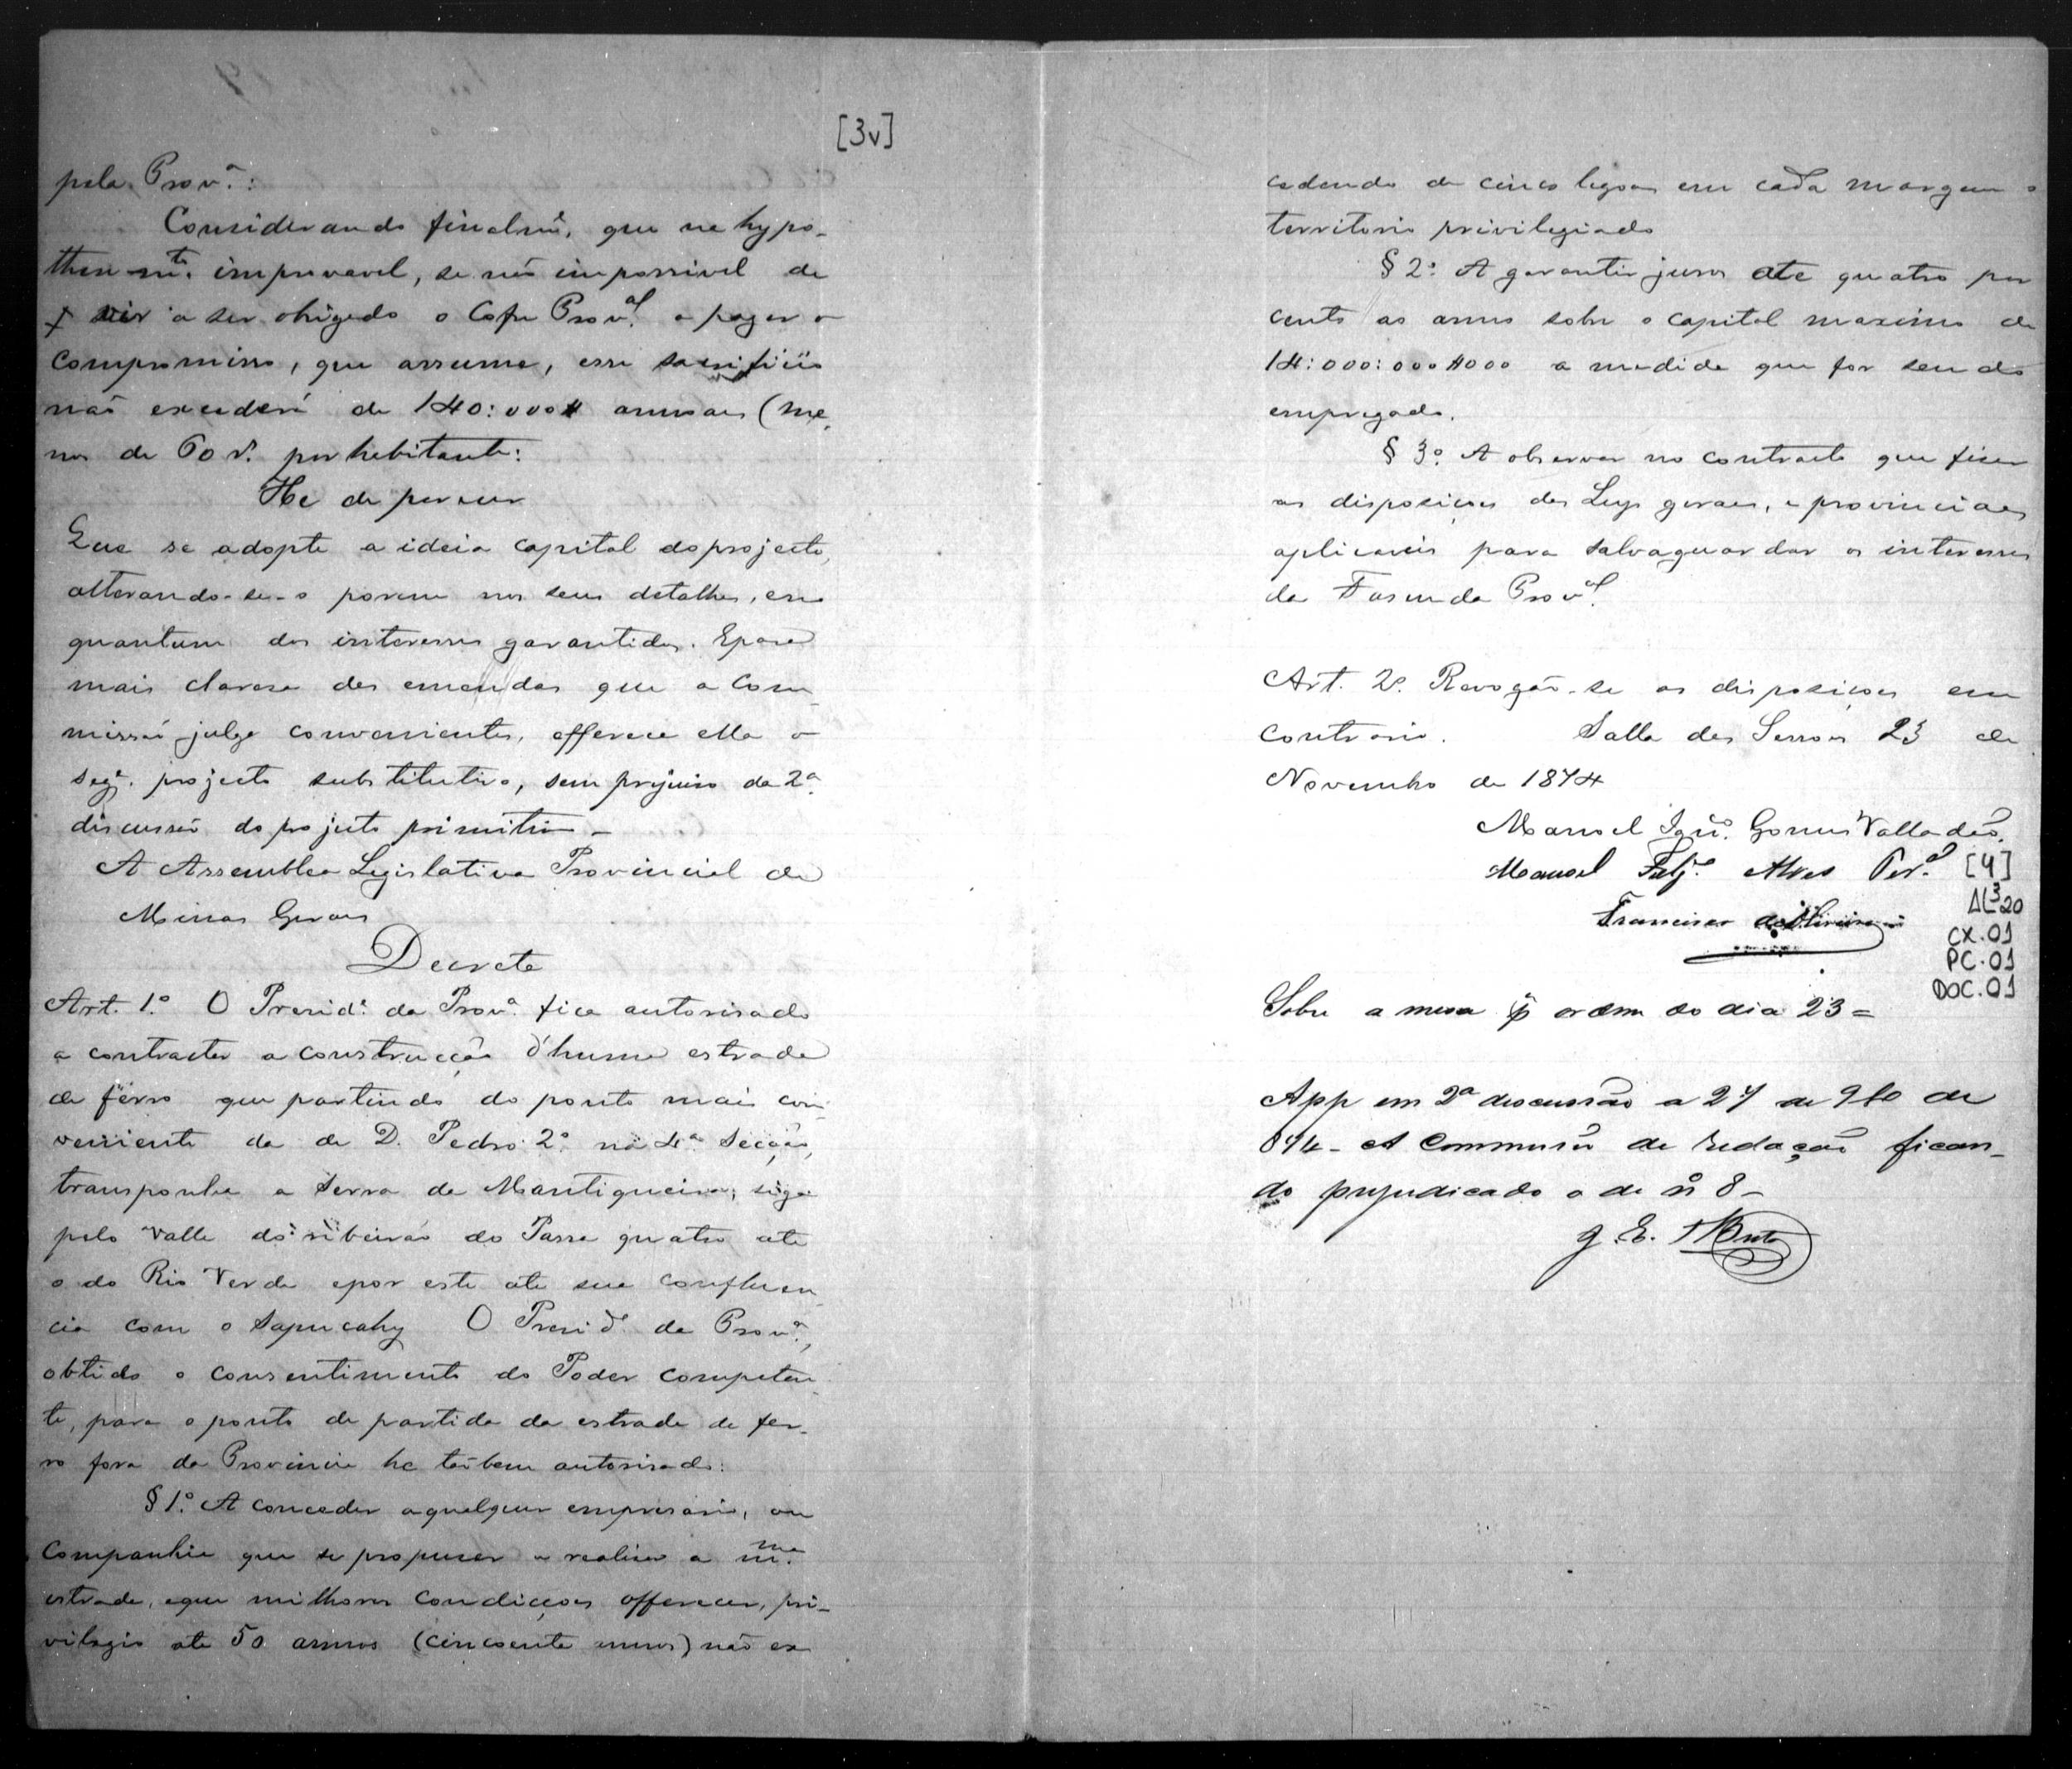 [3v]
pela Prov.ª:
Considerando finalm.e, que na hypo-
these m.to improvavel, se não impossivel de
vir a ser obrigado o Cofre Prov.al a pagar o
compromisso, que assume, esse sacrificio
não excederá de 140:000$ annuaes (me-
nos de 60 r.s por habitante:
He de parecer
Que se adopte a ideia capital do projecto,
alterando-se-o porem nos seus detalhes, e no
quantum dos interesses garantidos. E para
mais clareza das emendas que a Com-
missão julga convenientes, offerece ella o
seg.e projecto substitutivo, sem prejuiso da 2ª
discussão do projecto primitivo -
A Assemblea Legislativa Provincial de
Minas Geraes
Decreta
Art. 1.º O Presid.e da Prov.ª fica autorisado
a contractar a construcção d'huma estrada
de ferro que partindo do ponto mais con-
veniente da de D. Pedro 2.º na 4.ª Secção,
transponha a Serra da Mantiqueira, siga
pelo Valle do ribeirão do Passa quatro ate
o do Rio Verde e por este ate sua confluen-
cia com o Sapucahy O Presid.e da Prov.ª,
obtido o consentimento do Poder competen-
te, para o ponto de partida da estrada de fer-
ro fora da Provincia he tãobem autorisado:
§ 1.º A conceder a qualquer empresario, ou
Companhia que se propuser a realisar a m.ma
estrada, e que milhores condicções offerecer, pri-
vilegio ate 50 annos (cincoenta annos) não ex
cedendo de cinco legoas em cada margem o
territorio privilegiado
§ 2.º A garantir juros ate quatro por
cento ao anno sobre o capital maximo de
14:000:000$000 a medida que for sendo
empregado.
§ 3.º A observar no contracto que fiser
as disposições das Leys geraes, e provinciaes
aplicaveis para salvaguardar os interesses
da Fasenda Prov.al
Art. 2.º Revogão-se as disposições em
contrario. Salla das Sessões 23 de
Novembro de 1874
Manoel Ign.º Gomes Valladão
Manoel Alves Per.ª [4]
Francisco de Oliveira
AL³20
CX.01
PC.01
DOC.01
Sobre a mesa p ordem do dia 23 =
App em 2ª discussão a 27 de 9bro de
874 - A Commissão de redação fican-
do prejudicado o de nº 8 -
J. E.